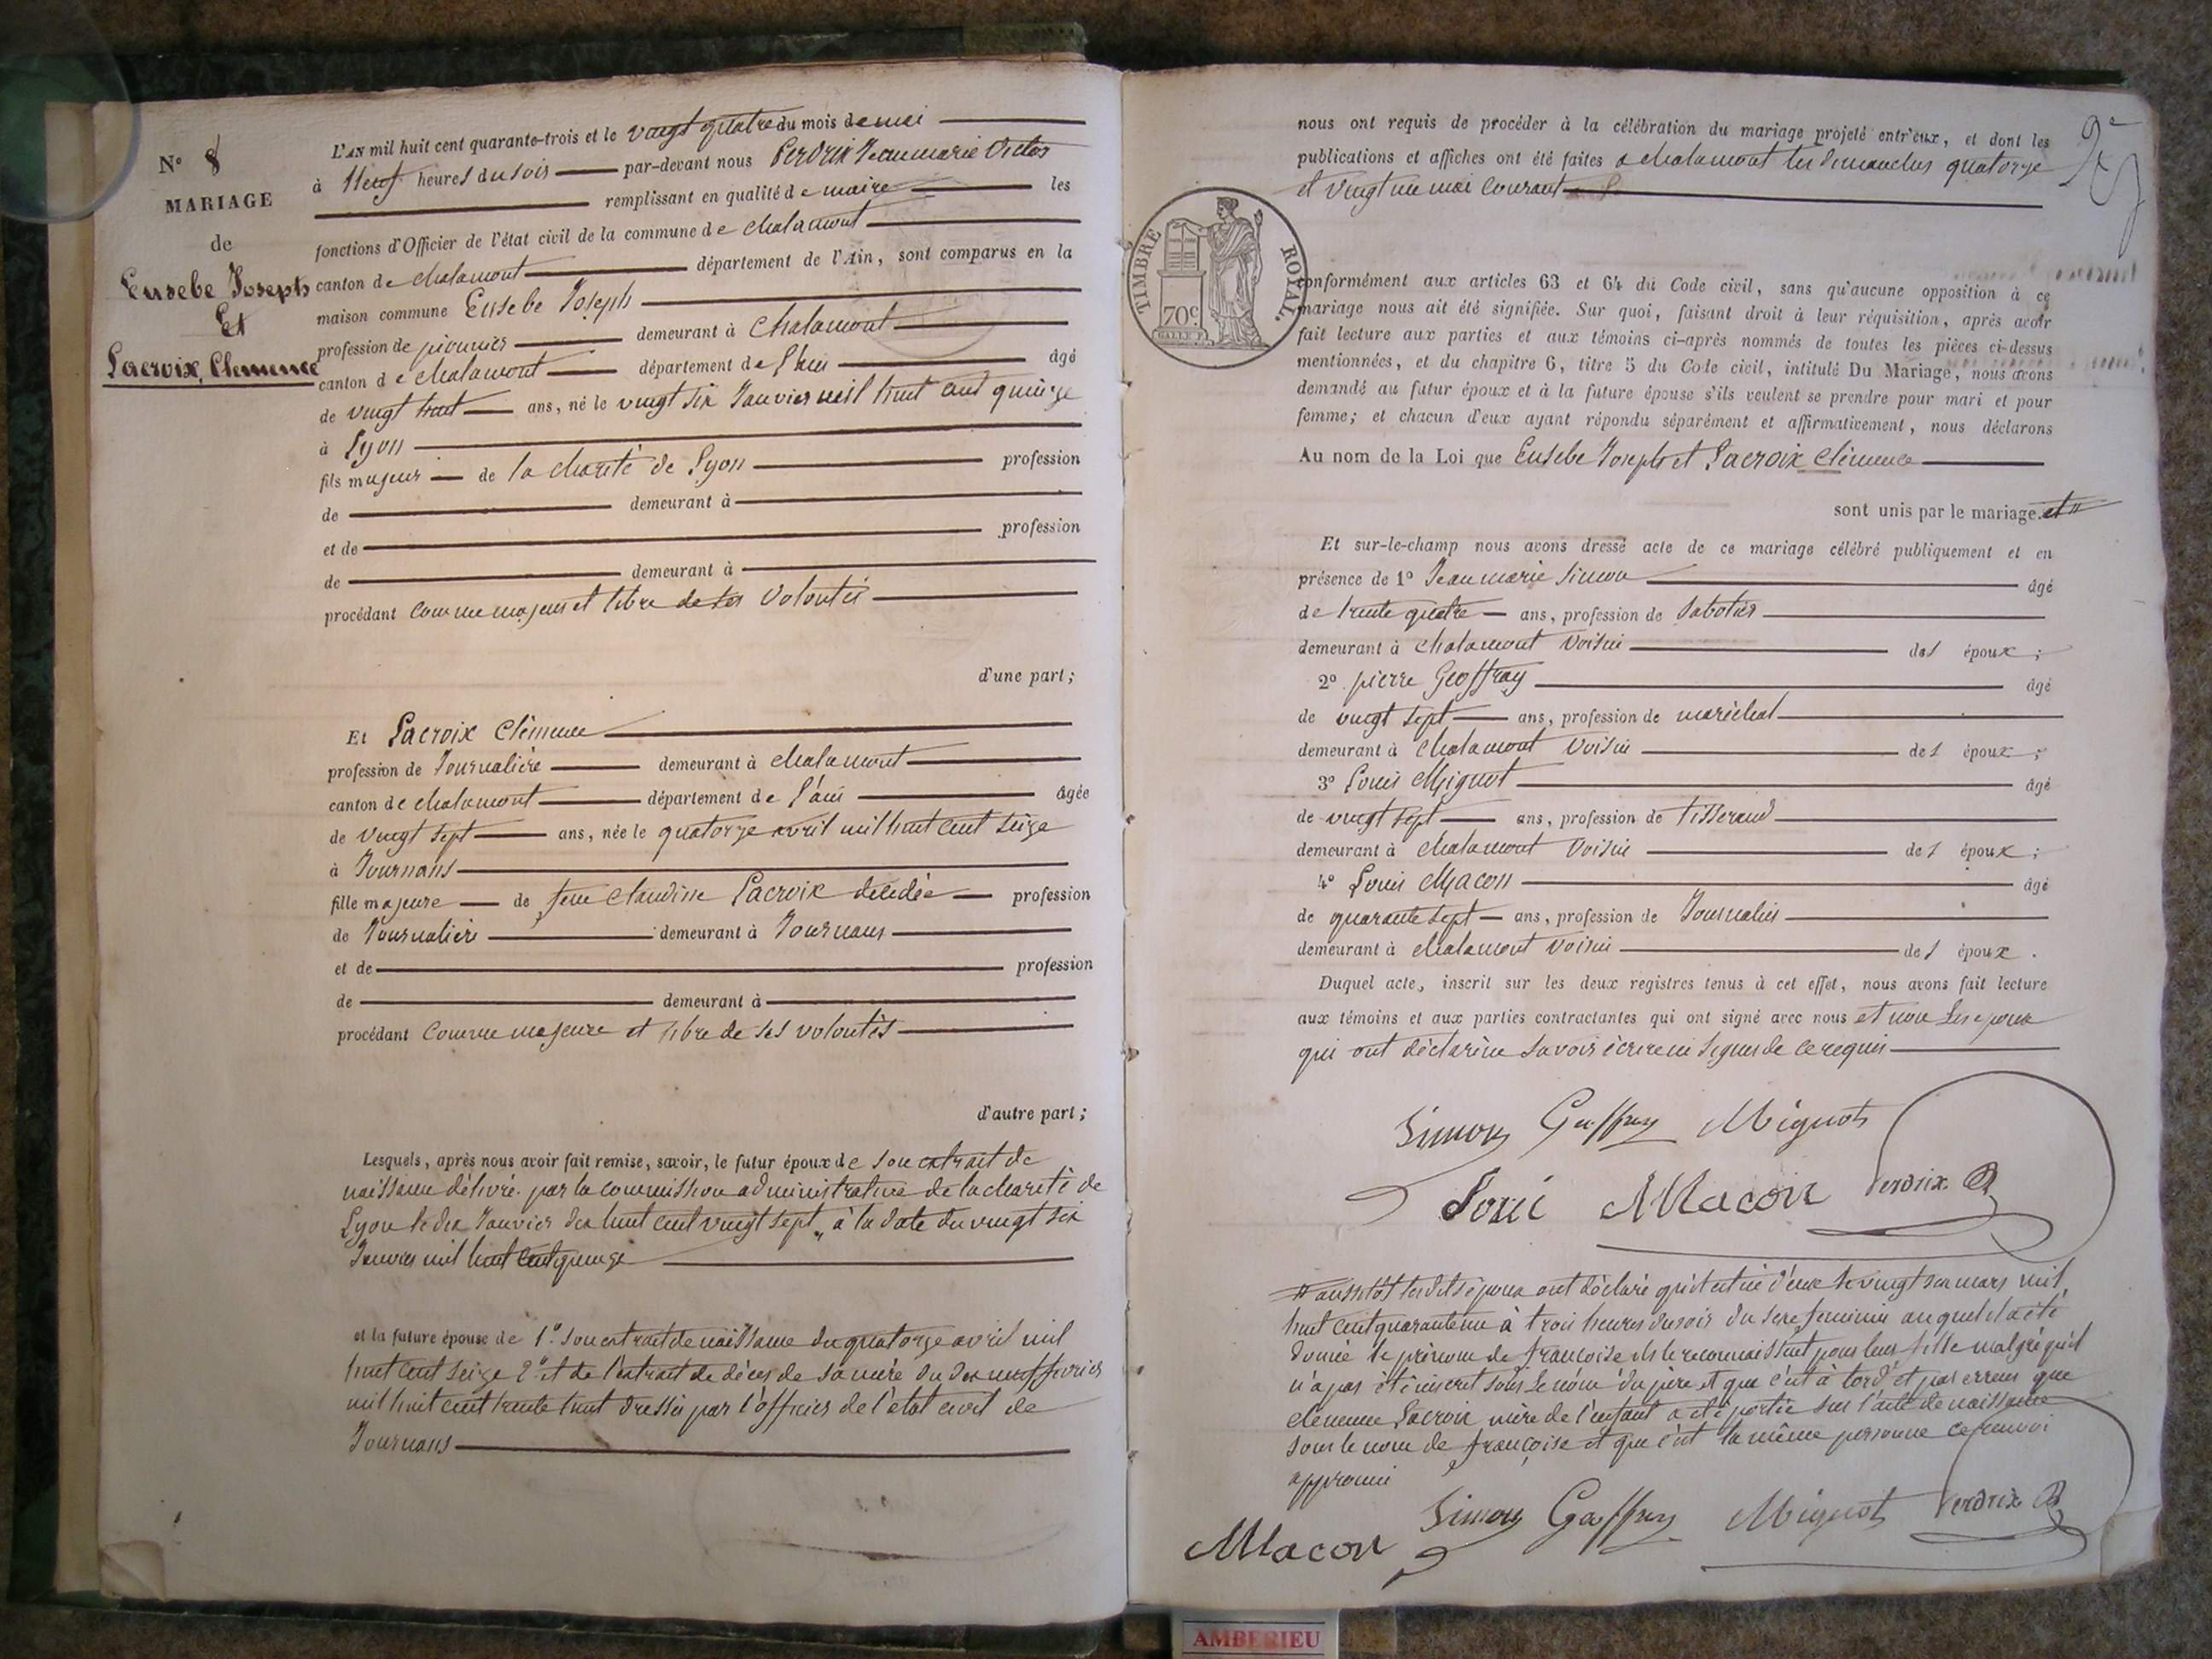 N° 8
MARIAGE
de
Eusebe Joseph
Et
Lacroix Clemence
L'AN mil huit cent quarante-trois et le vingt quatre du mois de mai
à Neuf heures du soir par-devant nous Perdrix Jean marie Victor
remplissant en qualité de maire les
fonctions d'Officier de l'état civil de la commune de chalamont
canton de chalamont département de l'Ain, sont comparus en la
maison commune Eusebe Joseph
profession de pionnier demeurant à chalamont
canton de chalamont département de l'Ain âgé
de vingt huit ans, né le vingt six Janvier mil huit cent quinze
à Lyon
fils majeur de la charité de Lyon profession
de demeurant à
et de profession
de demeurant à
procédant comme majeur et libre de ses volontés
d'une part;
Et Lacroix Clémence
profession de Journalière demeurant à chalamont
canton de chalamont département de l'ain âgée
de vingt sept ans, née le quatorze avril mil huit cent seize
à Journans
fille majeure de feue Claudine Lacroix décédée profession
de Journalière demeurant à Journans
et de profession
de demeurant à
procédant comme majeure et libre de ses volontés
d'autre part;
Lesquels, après nous avoir fait remise, savoir, le futur époux de son extrait de
naissance délivré par la commission administrative de la charité de
Lyon le dix Janvier dix huit cent vingt sept, à la date du vingt six
Janvier mil huit cent quinze
et la future épouse de 1° son extrait de naissance du quatorze avril mil
huit cent seize 2° et de l'extrait de décès de sa mère du dix neuf fevrier
mil huit cent trente huit dressés par l'officier de l'état civil de
Journans
nous ont requis de procéder à la célébration du mariage projeté entr'eux, et dont les
publications et affiches ont été faites a chalamont les dimanches quatorze
et vingt un mai courant
TIMBRE ROYAL.
70c
conformément aux articles 63 et 64 du Code civil, sans qu'aucune opposition à ce
mariage nous ait été signifiée. Sur quoi, faisant droit à leur réquisition, après avoir
fait lecture aux parties et aux témoins ci-après nommés de toutes les pièces ci-dessus
mentionnées, et du chapitre 6, titre 5 du Code civil, intitulé Du Mariage, nous avons
demandé au futur époux et à la future épouse s'ils veulent se prendre pour mari et pour
femme; et chacun d'eux ayant répondu séparément et affirmativement, nous déclarons
Au nom de la Loi que Eusebe Joseph et Lacroix Clémence
sont unis par le mariage. et #
Et sur-le-champ nous avons dressé acte de ce mariage célébré publiquement et en
présence de 1° Jean marie Simon âgé
de trente quatre ans, profession de Sabotier
demeurant à chalamont voisin des époux;
2° pierre Geoffray âgé
de vingt sept ans, profession de maréchal
demeurant à chalamont voisin des époux;
3° Louis Mignot âgé
de vingt sept ans, profession de tisserand
demeurant à chalamont voisin des époux;
4° Louis Macon âgé
de quarante sept ans, profession de Journalier
demeurant à chalamont voisin des époux.
Duquel acte, inscrit sur les deux registres tenus à cet effet, nous avons fait lecture
aux témoins et aux parties contractantes qui ont signé avec nous et non les epoux
qui ont déclaré ne savoir écrire ni signer de ce requis
Simon Geoffray Mignot
Loui Macon Perdrix
# aussitôt lesdits époux ont déclaré qu'il est né d'eux le vingt six mars mil
huit cent quarante un à trois heures du soir du sexe feminin auquel il a été
donné le prénom de françoise ils le reconnaissent pour leur fille malgré qu'il
n'a pas été inscrit sous le nom du père et que c'est à tord et par erreur que
clémence Lacroix mère de l'enfant a été portée sur l'acte de naissance
sous le nom de françoise et que c'est la même personne ce renvoi
approuvé
Simon Geoffray Mignot Perdrix
Macon
AMBERIEU